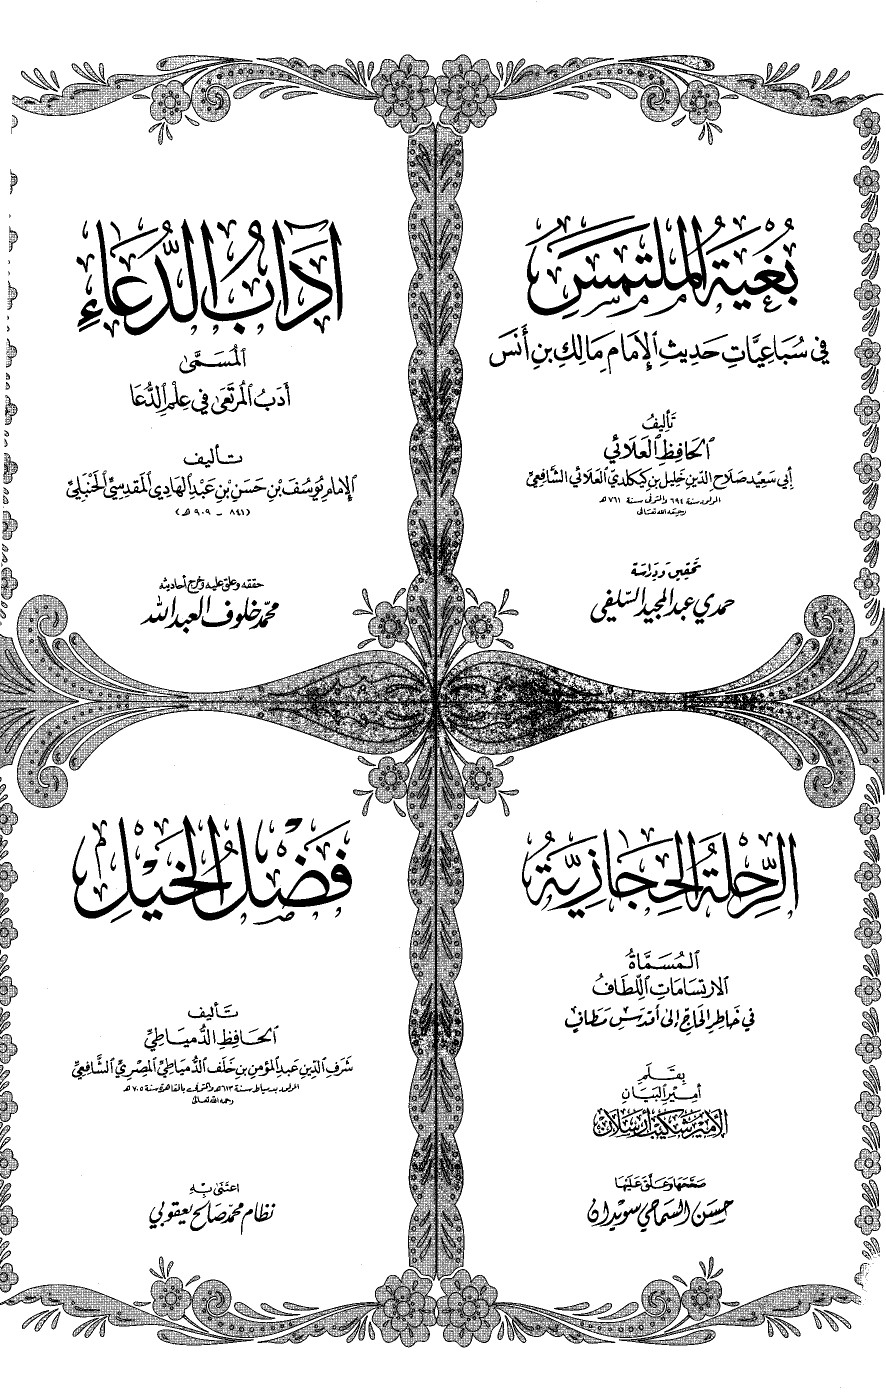 بُغْيَةُ المُلْتَمِسِ
في سُبَاعِيَّاتِ حَدِيثِ الإِمَامِ مَالِكِ بنِ أَنَس
تَأليفُ
الحَافِظِ العَلَائي
أبي سَعِيد صَلَاح الدِّين خَلِيل بن كَيْكَلْدِي العَلَائي الشَّافِعِيِّ
المولود سنة ٦٩٤ والمتوفى سنة ٧٦١ هـ
رحمه الله تعالى
تحقيق ودراسة
حمدي عبد المجيد السّلفي
آدَابُ الدُّعَاءِ
المُسَمَّى
أَدَبُ المُرتَعَى في عِلْمِ الدُّعَا
تأليف
الإمام يُوسُف بن حَسَن بن عَبد الهَادي المَقدسِيِّ الحَنْبَلِيِّ
(٨٤١ - ٩٠٩ هـ)
حققه وعلق عليه وخرج أحاديثه
محمّد خلوف العبد الله
الرِّحْلَةُ الحِجَازِيَّةُ
المُسَمَّاةُ
الارتسَامَات اللِّطَافُ
في خَاطِرِ الحَاجّ إلى أقدَسِ مَطَاف
بِقَلَمِ
أمِير البَيَان
الأمير شكيب أرسلان
صَحَّحَهَا وَعَلَّقَ عَلَيهَا
حسن السماحي سويدان
فَضْلُ الخَيْلِ
تَأليف
الحَافِظ الدُّميَاطِيِّ
شَرَفِ الدِّين عَبد المُؤمِن بن خَلَف الدُّميَاطِيِّ المِصْرِيِّ الشَّافِعِيِّ
المولود بدمياط سنة ٦١٣ هـ والمتوفى بالقاهرة سنة ٧٠٥ هـ
رحمه الله تعالى
اعتَنَى بِهِ
نظام محمّد صَالح يعقوبي